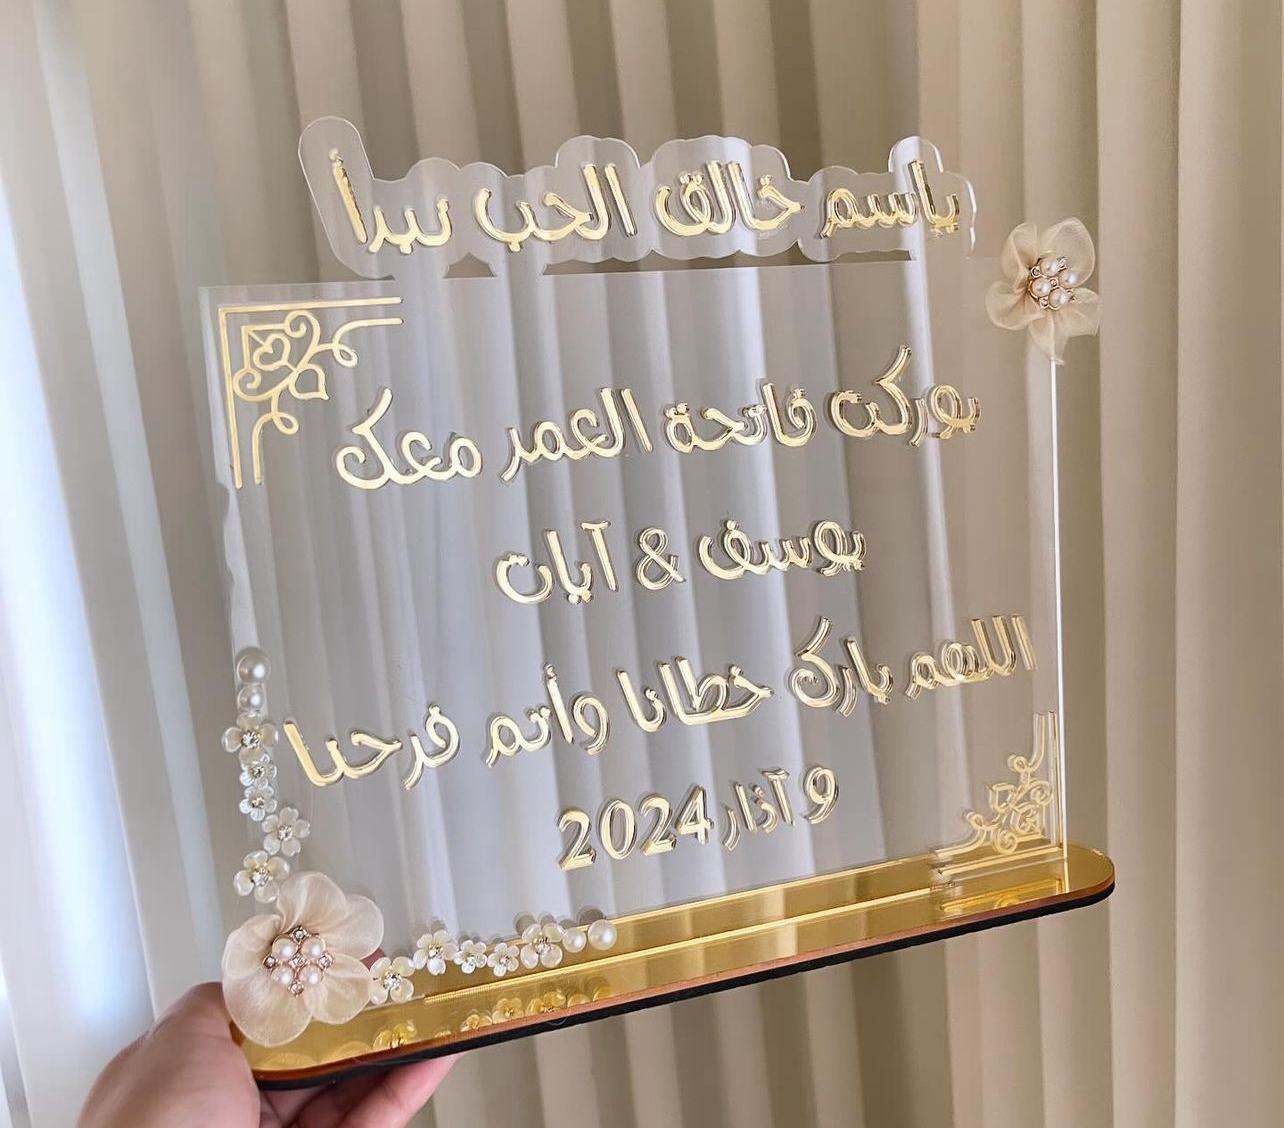 بإسم خالق الحب نبدأ
بوركت فاتحة العمر معك
يوسف & آيات
اللهم بارك خطانا وأتم فرحنا
9 آذار 2024